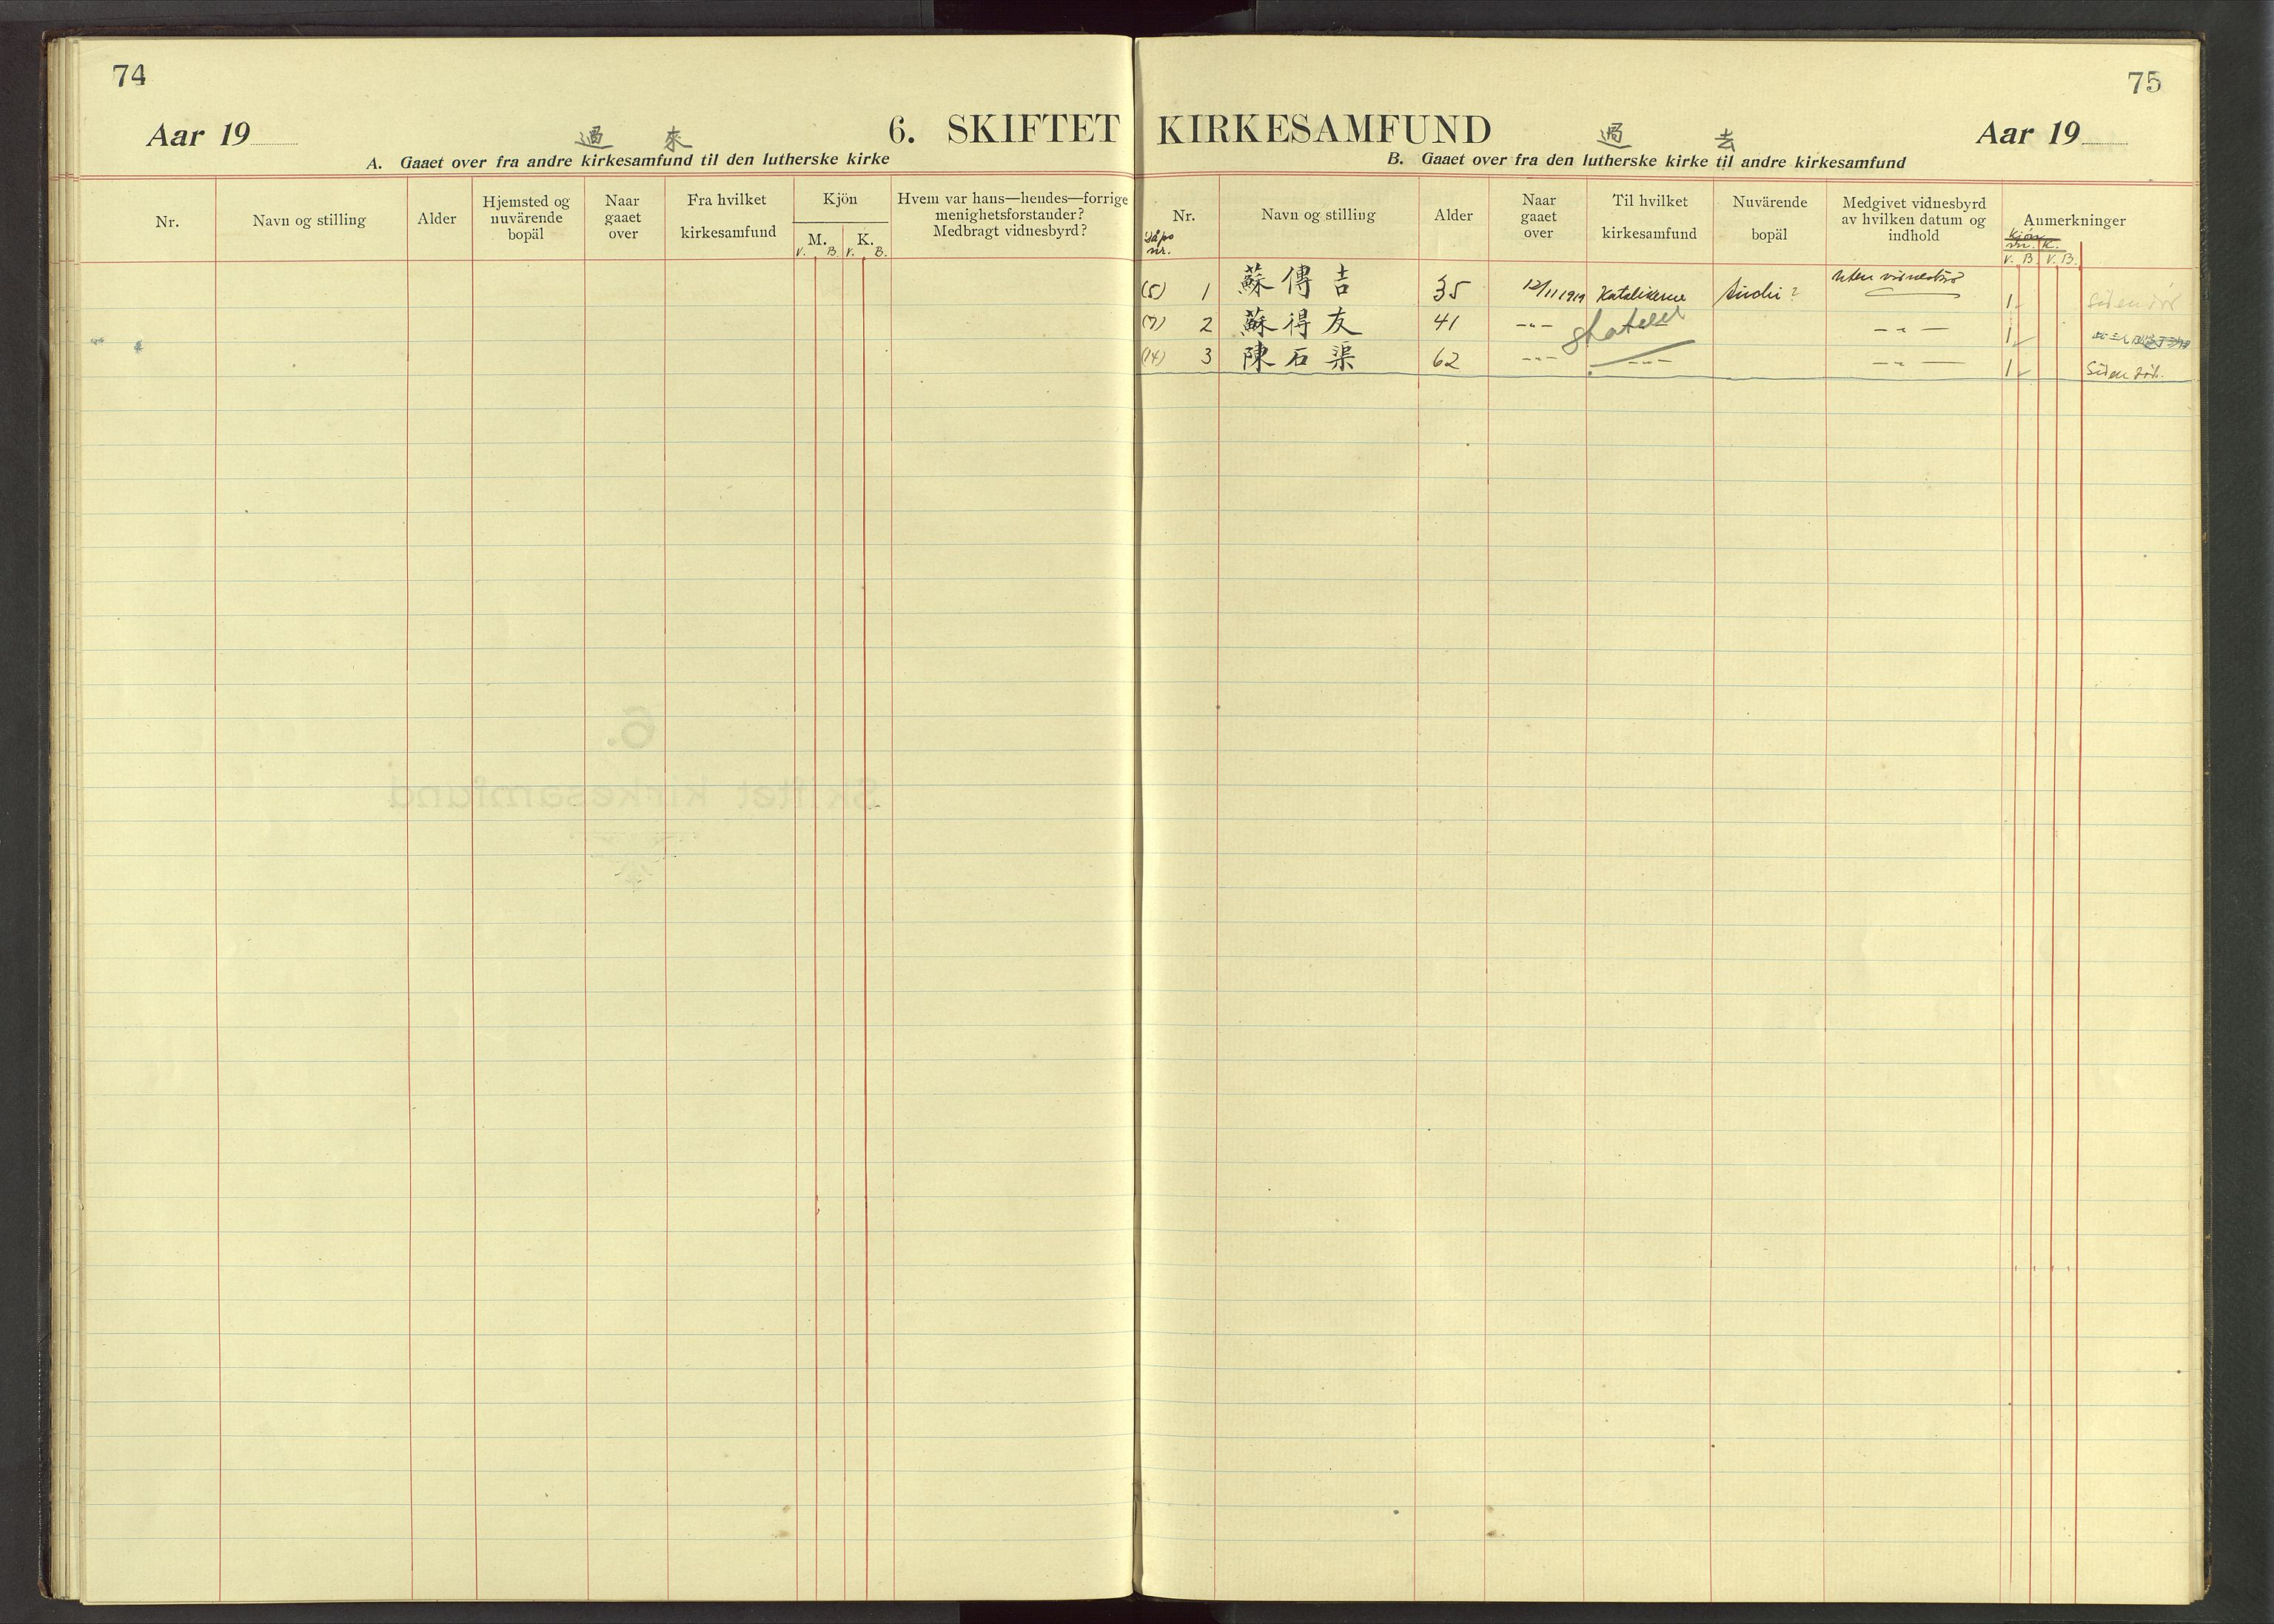 74
Aar 19
過 來
6. SKIFTET
A. Gaaet over fra andre kirkesamfund til den lutherske kirke
Nr.
Navn og stilling
Alder
Hjemsted og nuværende bopäl
Naar gaaet over
Fra hvilket kirkesamfund
Kjön
M. K.
V. B. V. B.
Hvem var hans—hendes—forrige menighetsforstander? Medbragt vidnesbyrd?
75
KIRKESAMFUND
過 去
Aar 19
B. Gaaet over fra den lutherske kirke til andre kirkesamfund
Nr.
nr.
Navn og stilling
Alder
Naar gaaet over
Til hvilket kirkesamfund
Nuvärende bopäl
Medgivet vidnesbyrd av hvilken datum og indhold
Anmerkninger
Kjön
m. K.
V. B. V. B.
(5) 1 蘇傳吉 35 12/11 1919 Katolikerne uten vidnesbyrd 1
(7) 2 蘇得友 41 -"- -"- 1
(14) 3 陳石渠 62 -"- -"- -"- 1 Siden död.
6.
Skiftet kirkesamfund